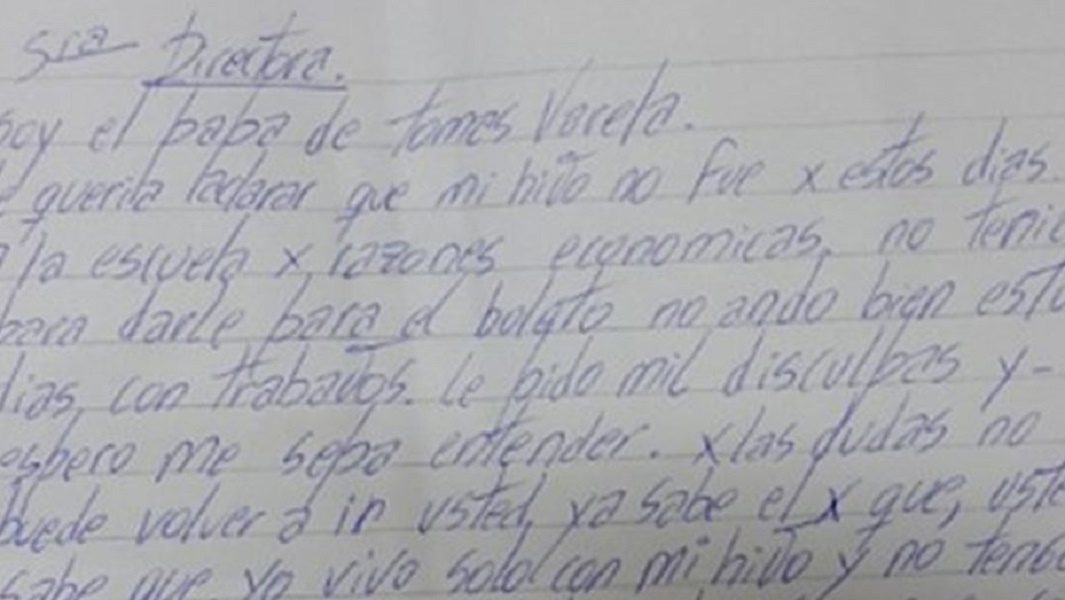 Sra Directora.
soy el papa de tomas Varela.
queria aclarar que mi hijo no fue x estos dias.
a la escuela x razones economicas. no tenia
para darle para el boleto no ando bien esto
dias, con trabajos. le pido mil disculpas y-
espero me sepa entender. x las dudas no
puede volver a ir usted, ya sabe el x que, uste
sabe que yo vivo solo con mi hijo y no tengo